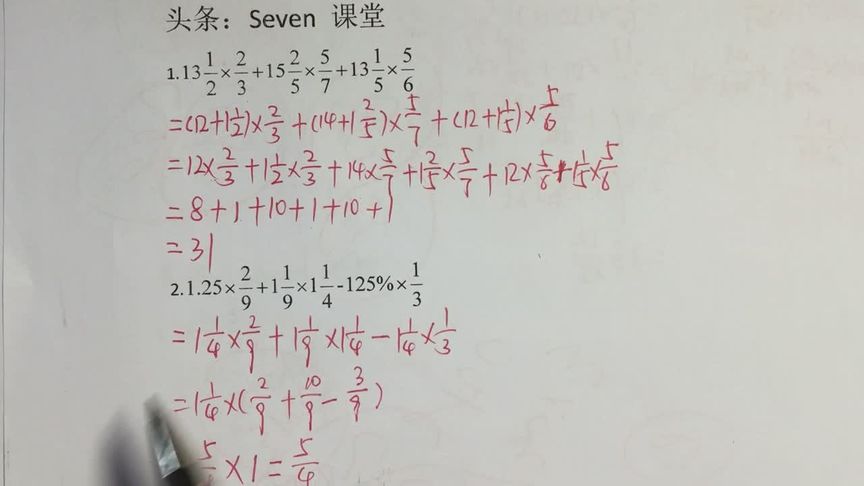 头条：Seven 课堂
1.13 1/2×2/3+15 2/5×5/7+13 1/5×5/6
=(12+1 1/2)×2/3+(14+1 2/5)×5/7+(12+1 1/5)×5/6
=12×2/3+1 1/2×2/3+14×5/7+1 2/5×5/7+12×5/6+1 1/5×5/6
=8+1+10+1+10+1
=31
2.1.25×2/9+1 1/9×1 1/4-125%×1/3
=1 1/4×2/9+1 1/9×1 1/4-1 1/4×1/3
=1 1/4×(2/9+10/9-3/9)
5/4×1=5/4